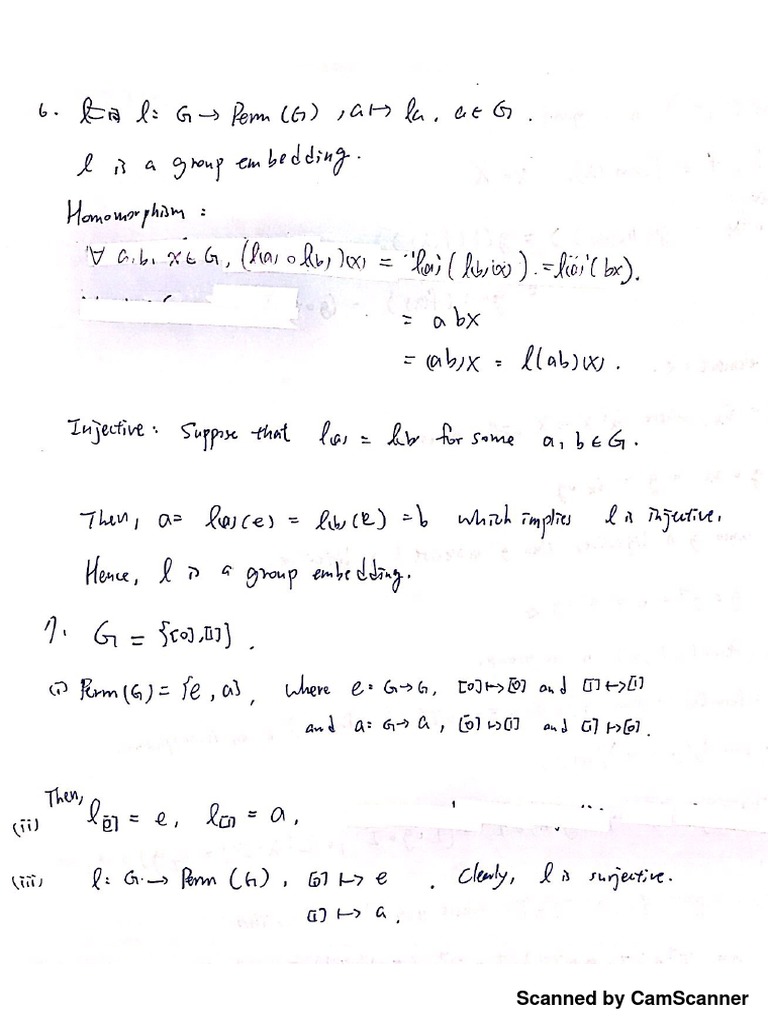 6. l: G → Perm (G), a ↦ la, a ∈ G.
l is a group embedding.
Homomorphism :
∀ a, b, x ∈ G, (l(a) ∘ l(b))(x) = l(a)(l(b)(x)) = l(a)(bx).
= abx
= (ab)x = l(ab)(x).
Injective : Suppose that l(a) = l(b) for some a, b ∈ G.
Then, a = l(a)(e) = l(b)(e) = b which implies l is injective.
Hence, l is a group embedding.
7. G = {[0],[1]}.
(i) Perm(G) = {e, a}, where e: G→G, [0]↦[0] and [1]↦[1]
and a: G→G, [0]↦[1] and [1]↦[0].
Then,
(ii) l[0] = e, l[1] = a,
(iii) l: G → Perm (G), [0] ↦ e . Clearly, l is surjective.
[1] ↦ a.
Scanned by CamScanner